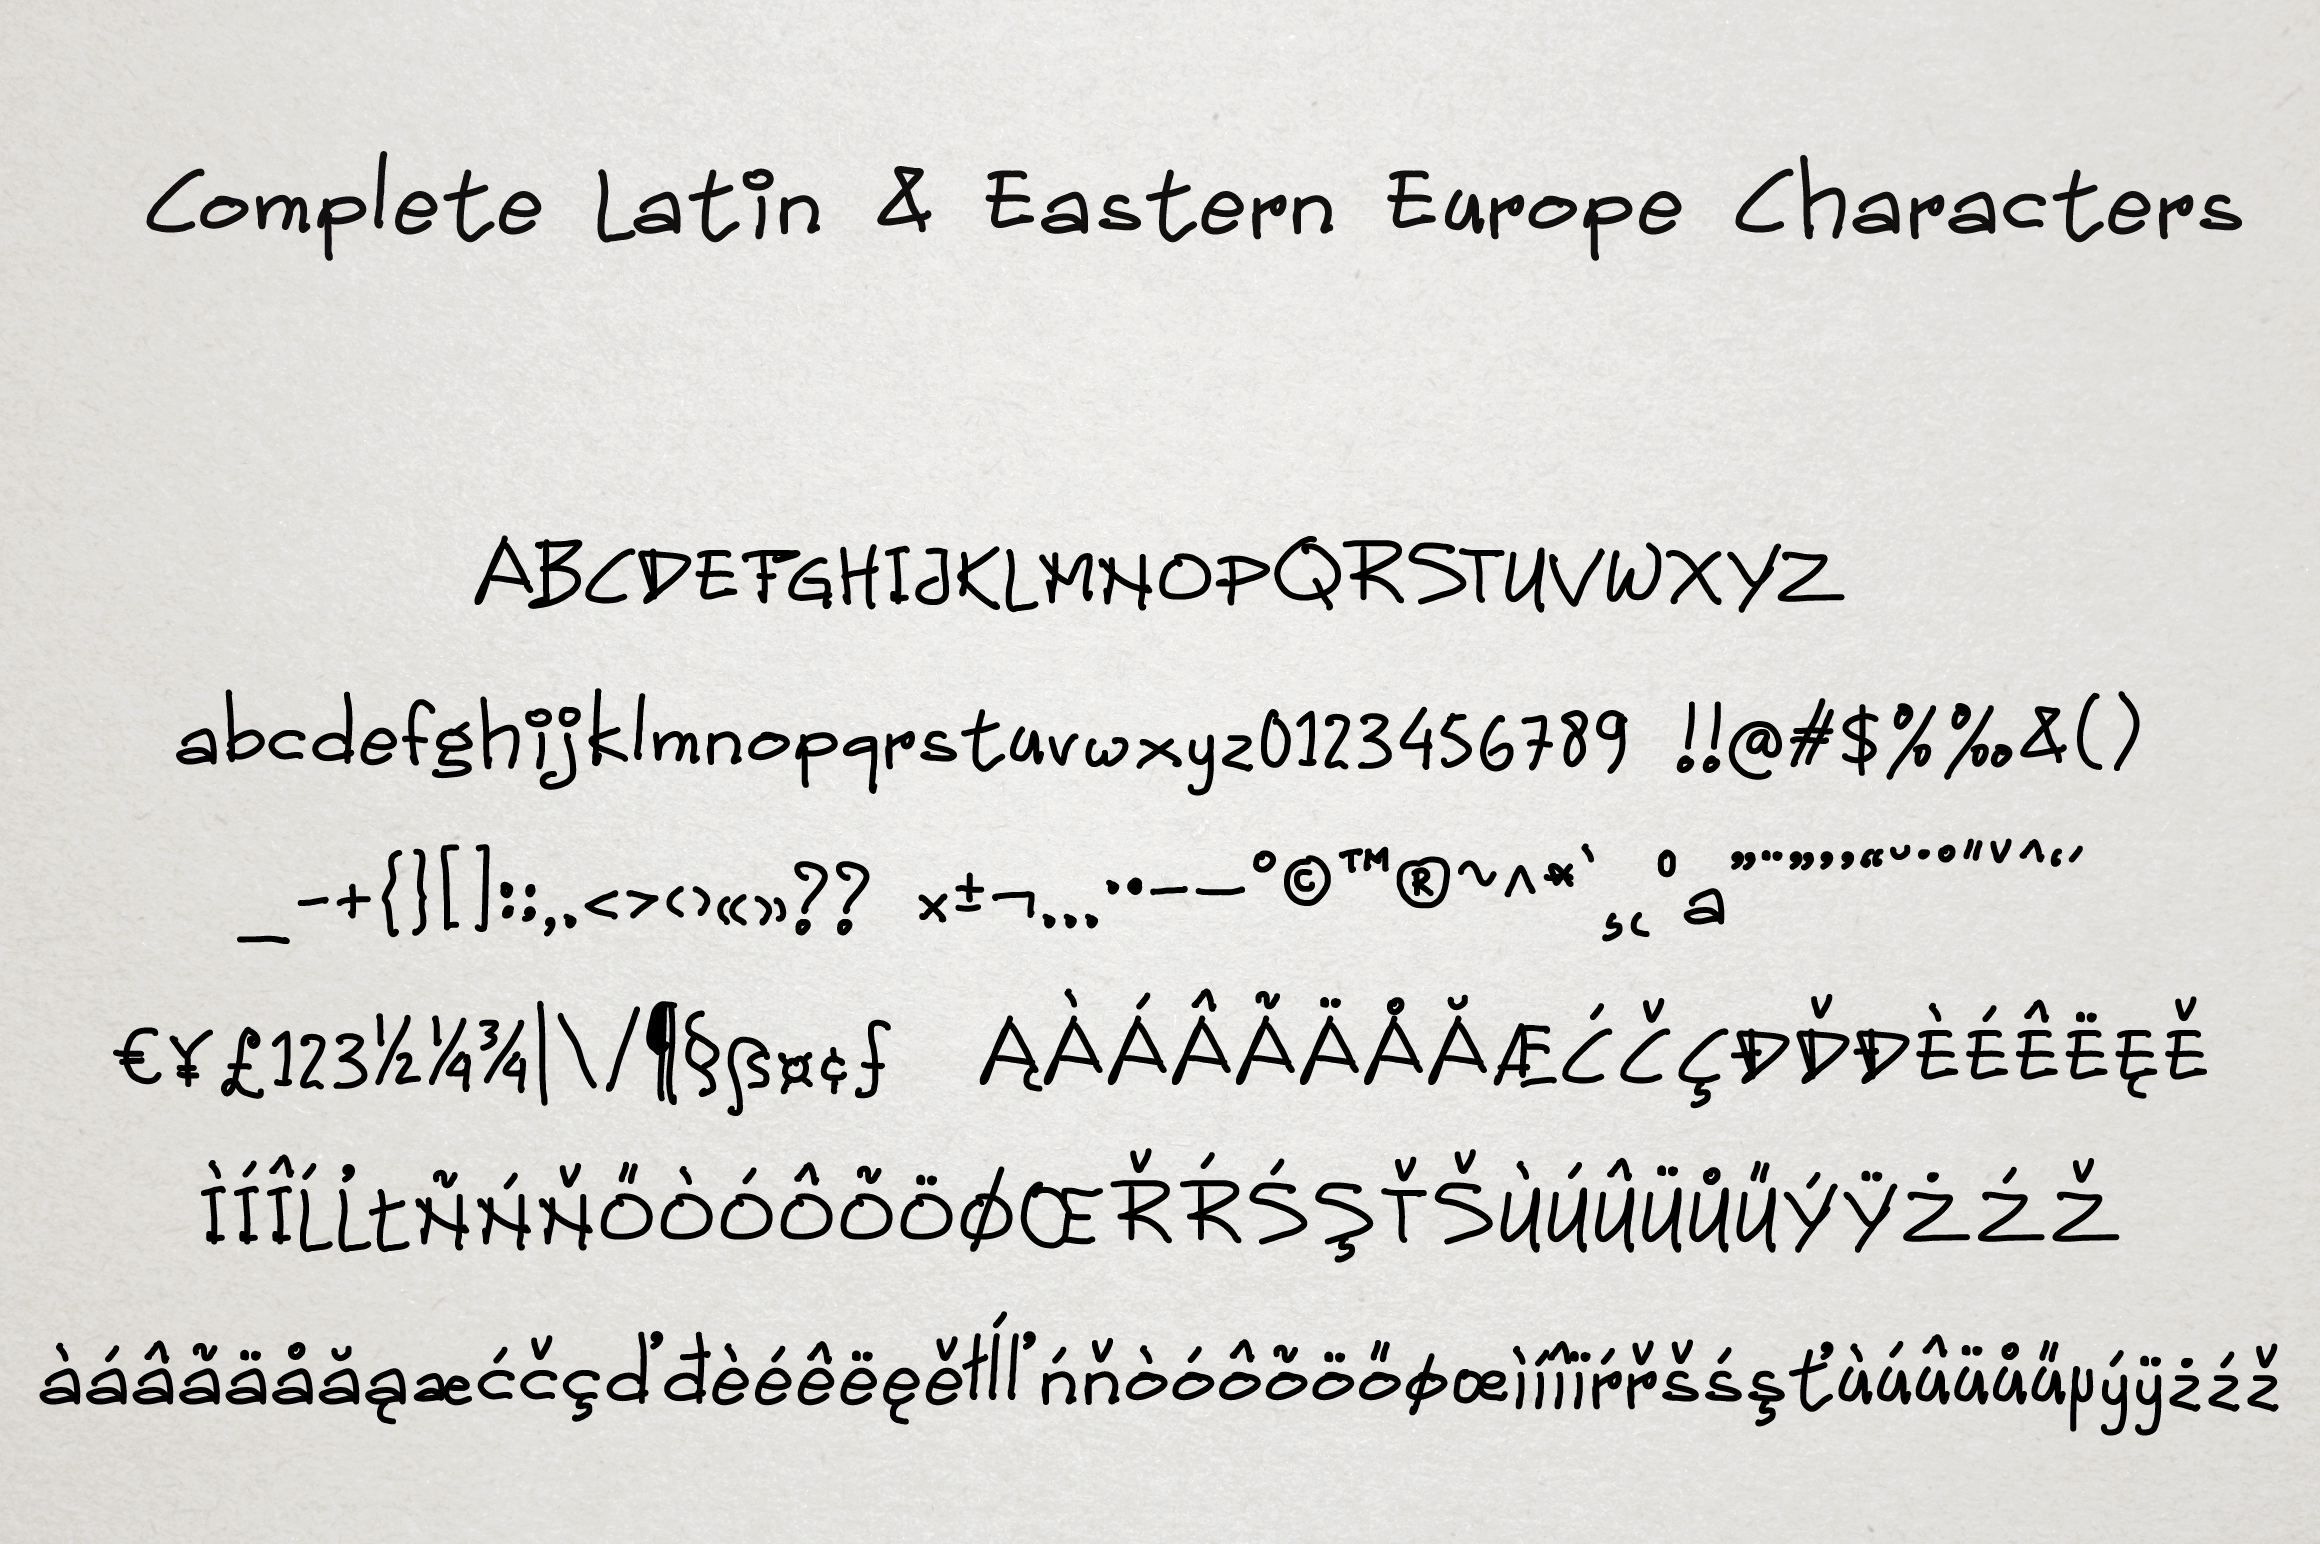 Complete Latin & Eastern Europe Characters
ABCDEFGHIJKLMNOPQRSTUVWXYZ
abcdefghijklmnopqrstuvwxyz0123456789 !!@#$%‰&()
_-+{}[]:;,.<>‹›«»?? ×±¬…·•–—°©™®~^*` ¸ ˛ ° ª ”¨”’’“˘˙°˝ˇ^‘´
€¥£123½¼¾|\/¶§ß¤¢ƒ ĄÀÁÂÃÄÅĂÆĆČÇĐĎÐÈÉÊËĘĚ
ÌÍÎĹĽŁÑŃŇŐÒÓÔÕÖØŒŘŔŚŞŤŠÙÚÛÜŮŰÝŸŻŹŽ
àáâãäåăąæćčçďđèéêëęěłĺľńňòóôõöőøœìíîïŕřšśşťùúûüůűµýÿżźž